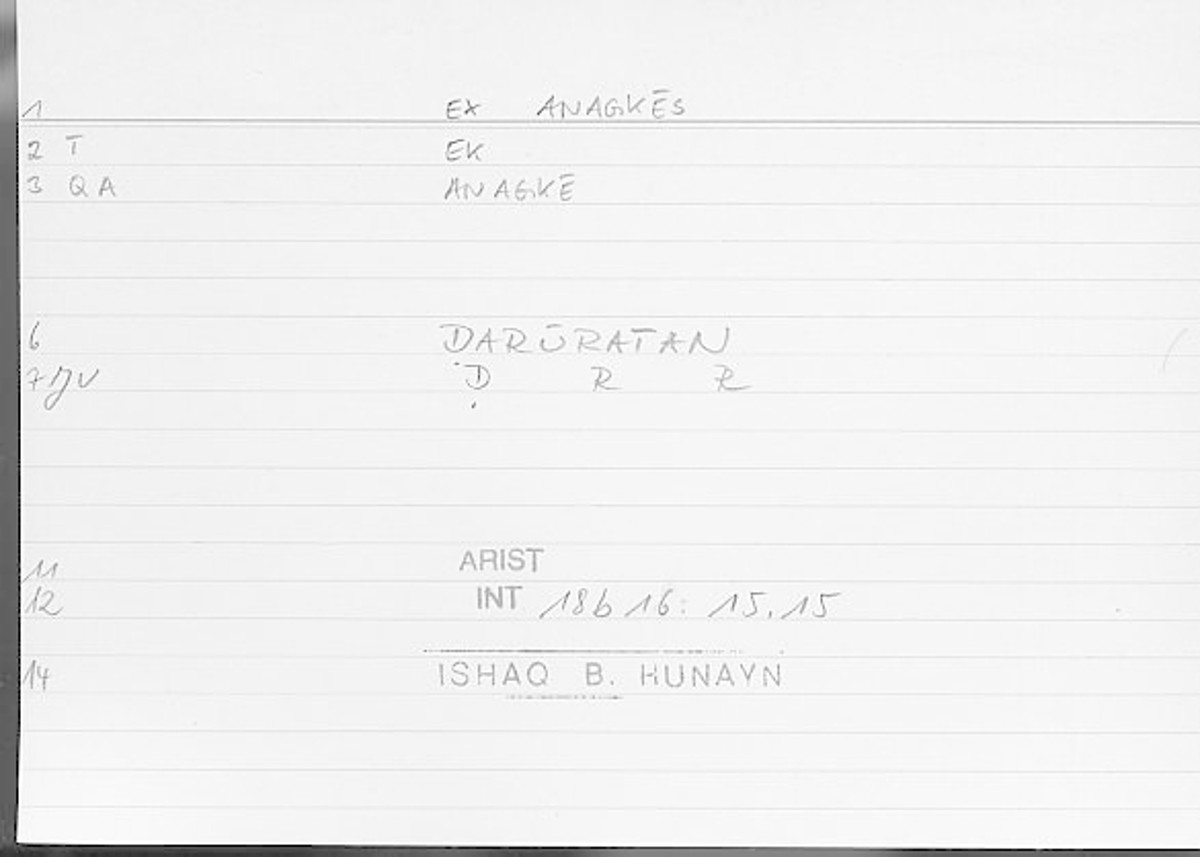 1 EX ANAGKĒS
2 T EK
3 QA ANAGKĒ
6 ḌARŪRATAN
7 Ḍ R R
11 ARIST
12 INT 18b16: 15,15
14 ISHAQ B. HUNAYN